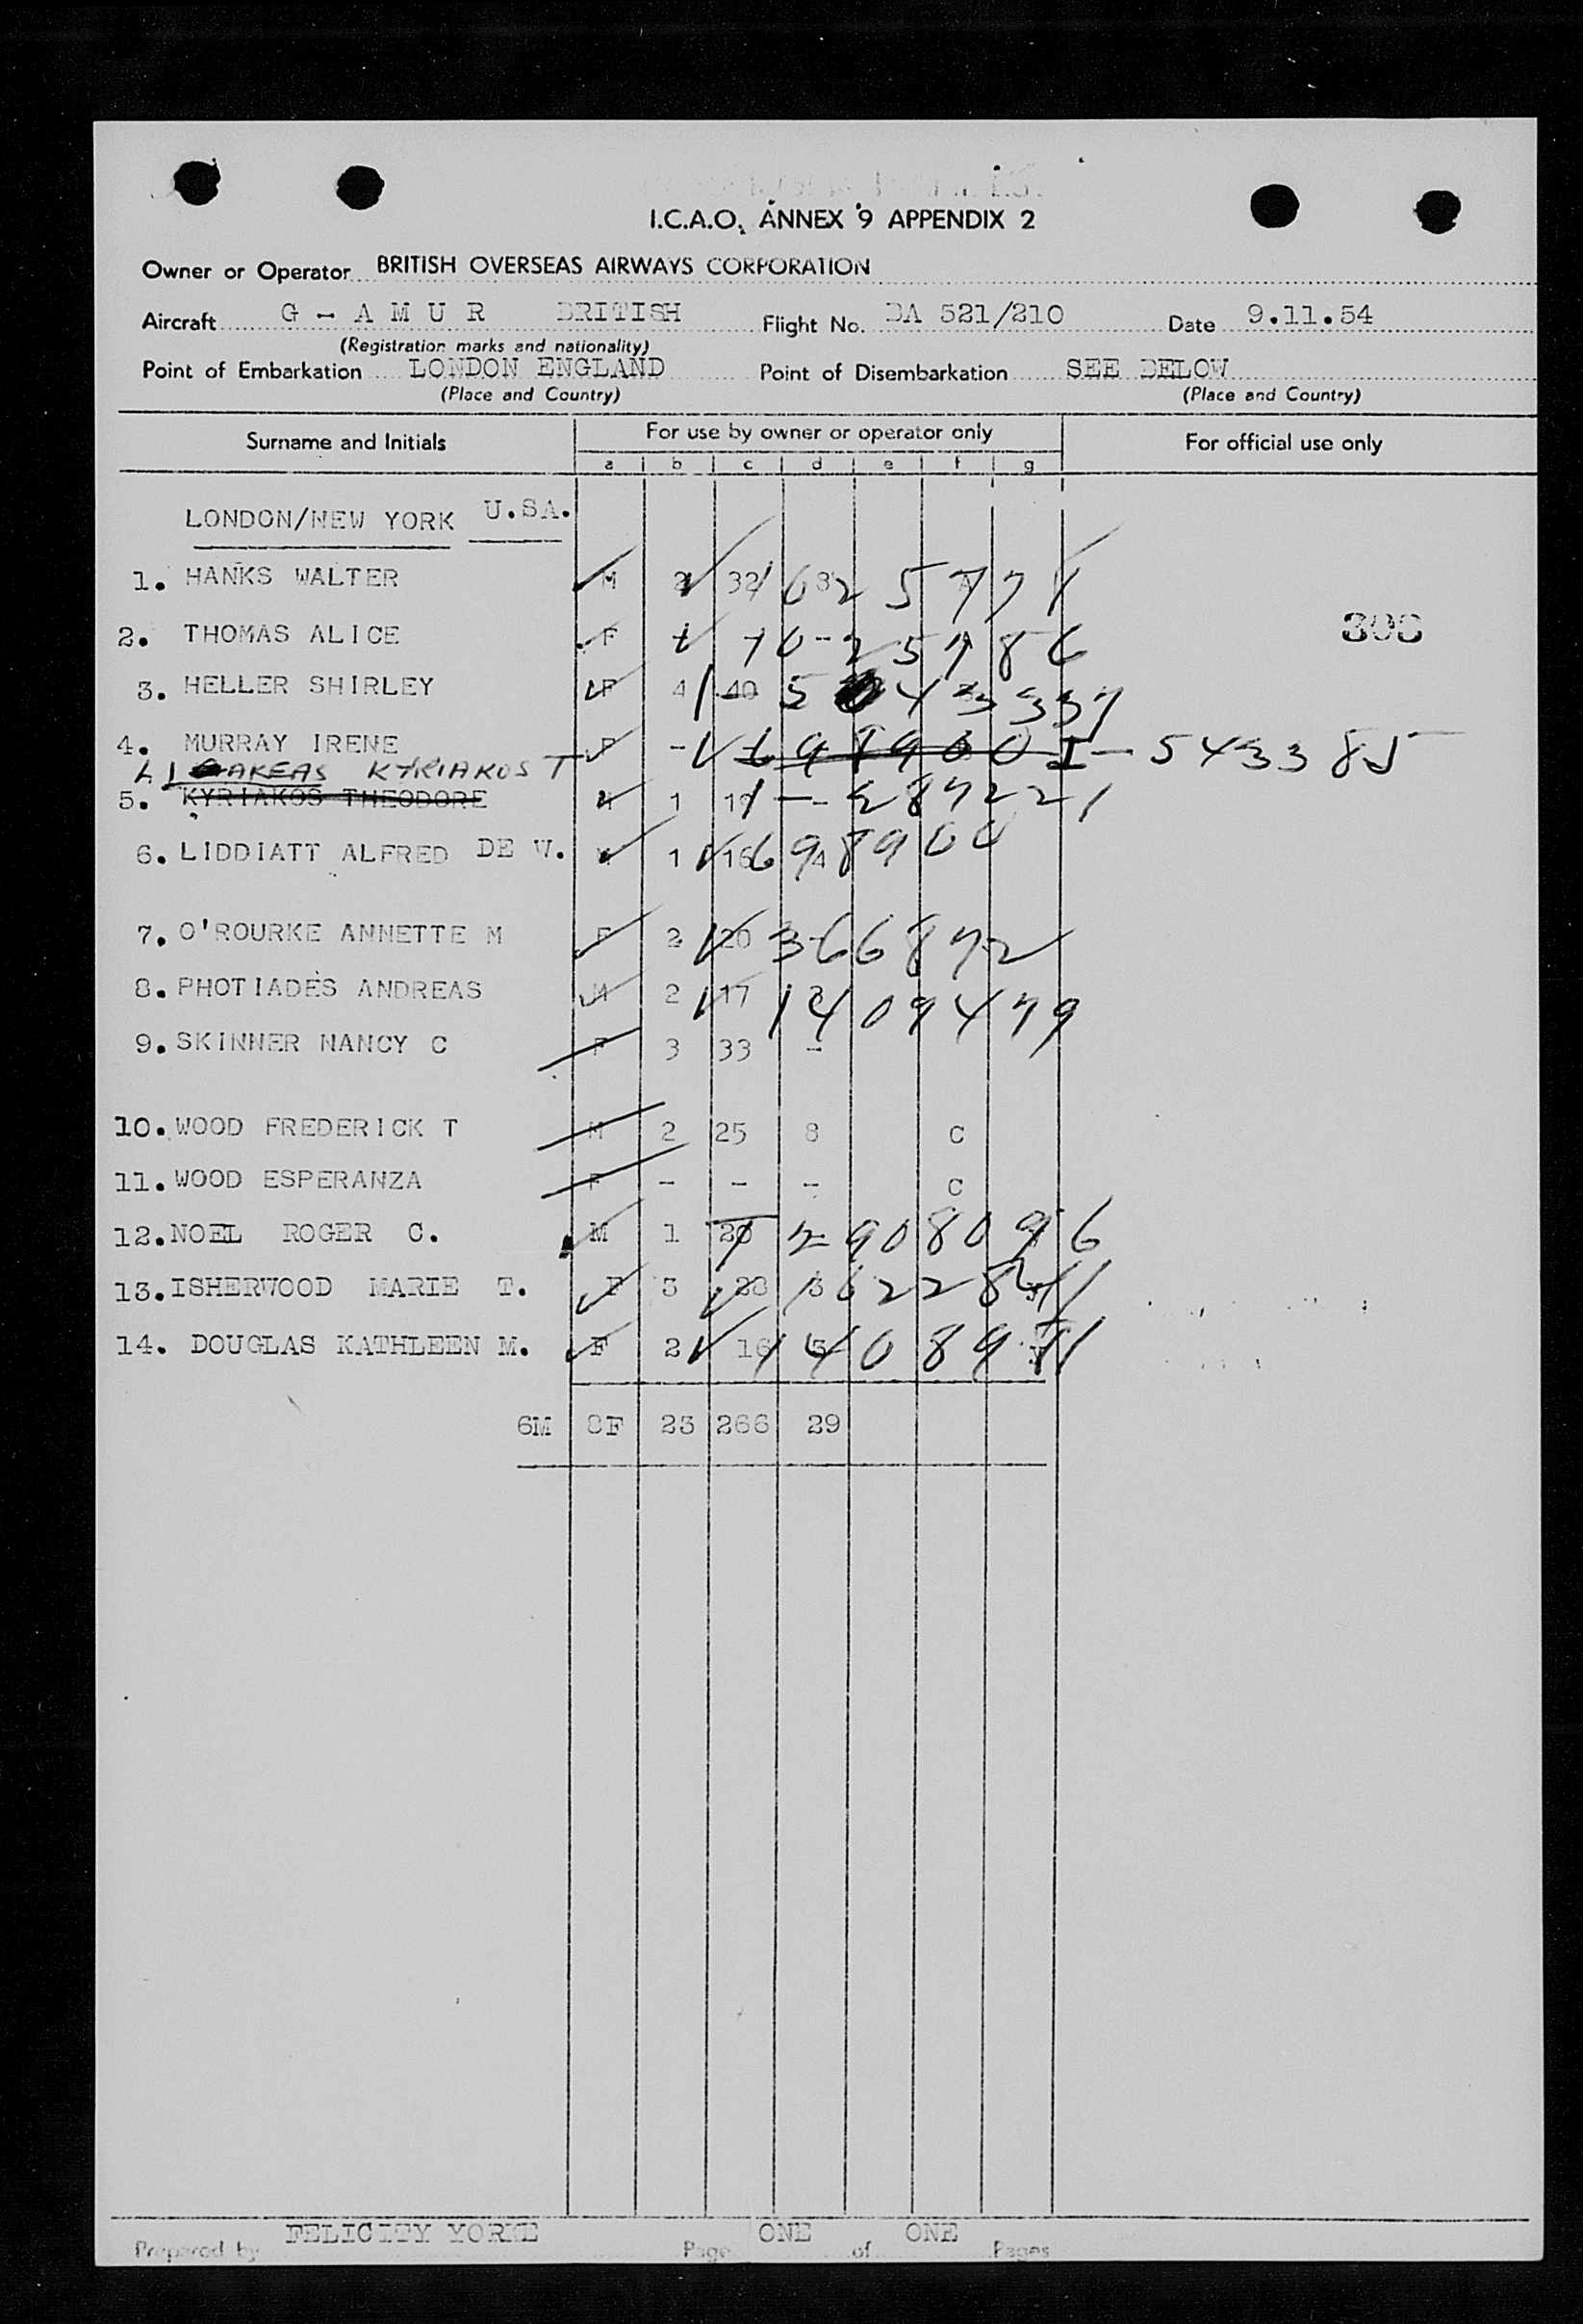 I.C.A.O. ANNEX 9 APPENDIX 2
Owner or Operator BRITISH OVERSEAS AIRWAYS CORPORATION
Aircraft G - A M U R BRITISH Flight No. BA 521/210 Date 9.11.54
(Registration marks and nationality)
Point of Embarkation LONDON ENGLAND Point of Disembarkation SEE BELOW
(Place and Country) (Place and Country)
Surname and Initials For use by owner or operator only For official use only
a b c d e f g
LONDON/NEW YORK U.SA.
1. HANKS WALTER M 2 32
2. THOMAS ALICE F
308
3. HELLER SHIRLEY F 4 40
4. MURRAY IRENE F - 1-543385
KYRIAKOS T
5. KYRIAKOS THEODORE M 1 1-287221
6. LIDDIATT ALFRED DE W. M 1 16 4 698900
7. O'ROURKE ANNETTE M F 2 20 - 366872
8. PHOTIADES ANDREAS M 2 17 1409479
9. SKINNER NANCY C F 3 33 -
10. WOOD FREDERICK T M 2 25 8 C
11. WOOD ESPERANZA F - - - C
12. NOEL ROGER C. M 1 20
13. ISHERWOOD MARIE T. F 3 3
14. DOUGLAS KATHLEEN M. F 2 16 5
6M 8F 23 266 29
Prepared by FELICITY YORKE Page ONE of ONE Pages